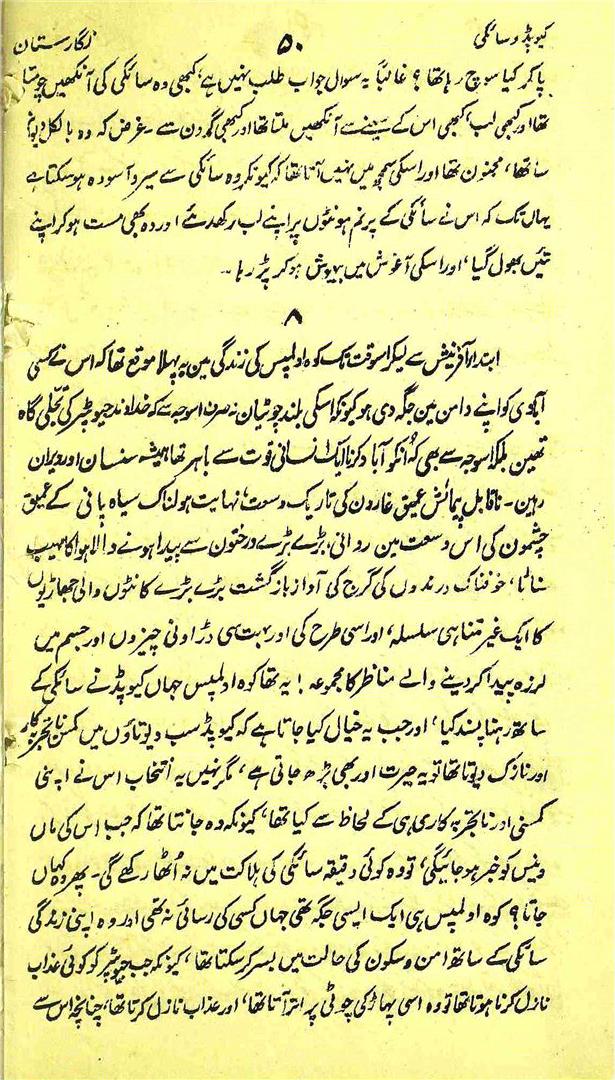 کیوپڈ و سائکی ۵۰ نگارستان
پاکر کیا سوچ رہا تھا؟ غالباً یہ سوال جواب طلب نہیں ہے، کبھی وہ سائکی کی آنکھیں چومتا
تھا اور کبھی لب، کبھی اس کے سینے سے آنکھیں ملتا تھا اور کبھی گردن سے۔ غرض کہ وہ بالکل
سا تھا، مجنون تھا اور اسکی سمجھ میں نہیں آتا تھا کہ کیونکر وہ سائکی سے سیر و آسودہ ہو سکتا ہے
یہاں تک کہ اس نے سائکی کے پرنم ہونٹوں پر اپنے لب رکھدئے اور وہ بھی مست ہو کر اپنے
تئیں بھول گیا، اور اسکی آغوش میں بیہوش ہو کر پڑ رہا۔
۸
ابتدار آفرنیش سے لیکر اسوقت تک کوہ اولمپس کی زندگی مین یہ پہلا موقع تھا کہ اس نے کسی
آبادی کو اپنے دامن مین جگہ دی ہو کیونکہ اسکی بلند چوٹیان نہ صرف اسوجہ سے کہ خداوند جیوپٹیر کی تجلی گاہ
تھین بلکہ اسوجہ سے بھی کہ انکو آباد کرنا ایک انسانی قوت سے باہر تھا ہمیشہ سنسان اور ویران
رہین۔ ناقابل پیمائش عمیق غارون کی تاریک وسعت، نہایت ہولناک سیاہ پانی کے عمیق
چشمون کی اس وسعت مین روانی، بڑے بڑے درختون سے پیدا ہونے والا ہوا کا مہیب
سناٹا، خوفناک درندوں کی گرج کی آواز بازگشت بڑے بڑے کانٹوں والی جھاڑیوں
کا ایک غیر متناہی سلسلہ، اور اسی طرح کی اور بہت سی ڈراونی چیزوں اور جسم میں
لرزہ پیدا کر دینے والے مناظر کا مجموعہ! یہ تھا کوہ اولمپس جہاں کیوپڈ نے سائکی کے
ساتھ رہنا پسند کیا، اور جب یہ خیال کیا جاتا ہے کہ کیوپڈ سب دیوتاؤں میں کمسن ناتجربہ کار
اور نازک دیوتا تھا تو یہ حیرت اور بھی بڑھ جاتی ہے، مگر نہیں یہ انتخاب اس نے اپنی
کمسنی اور ناتجربہ کاری ہی کے لحاظ سے کیا تھا، کیونکہ وہ جانتا تھا کہ جب اس کی ماں
وینس کو خبر ہو جائیگی، تو وہ کوئی دقیقہ سائکی کی ہلاکت میں نہ اُٹھا رکھے گی۔ پھر وہ کہاں
جاتا؟ کوہ اولمپس ہی ایک ایسی جگہ تھی جہاں کسی کی رسائی نہ تھی اور وہ اپنی زندگی
سائکی کے ساتھ امن و سکون کی حالت میں بسر کر سکتا تھا، کیونکہ جب جیوپٹر کو کوئی عذاب
نازل کرنا ہوتا تھا تو وہ اسی پہاڑ کی چوٹی پر اتر آتا تھا، اور عذاب نازل کرتا تھا، چنانچہ اس سے